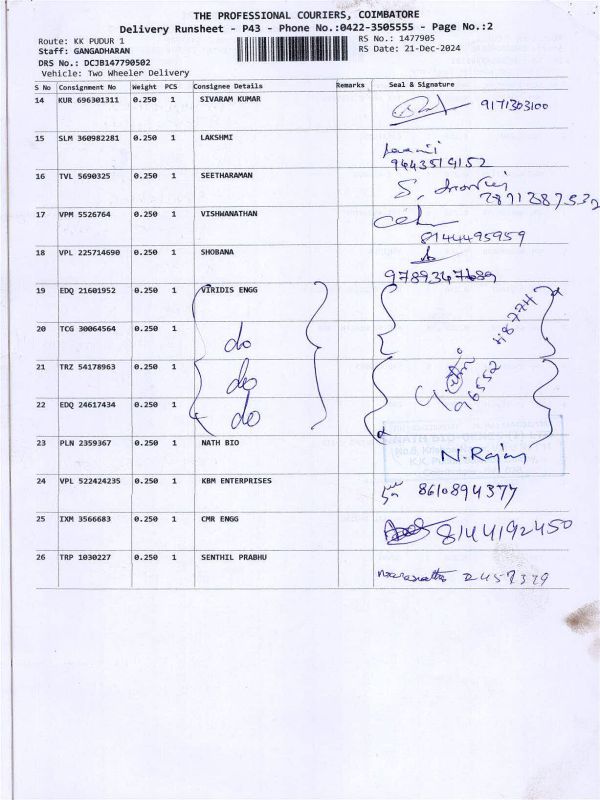 THE PROFESSIONAL COURIERS, COIMBATORE
Delivery Runsheet - P43 - Phone No.:0422-3505555 - Page No.:2
Route: KK PUDUR 1 RS No.: 1477905
Staff: GANGADHARAN RS Date: 21-Dec-2024
DRS No.: DCJB147790502
Vehicle: Two Wheeler Delivery
S No Consignment No Weight PCS Consignee Details Remarks Seal & Signature
14 KUR 696301311 0.250 1 SIVARAM KUMAR 9171303100
15 SLM 360982281 0.250 1 LAKSHMI
9443514152
16 TVL 5690325 0.250 1 SEETHARAMAN S.
17 VPM 5526764 0.250 1 VISHWANATHAN
8144495959
18 VPL 225714690 0.250 1 SHOBANA
9789347689
19 EDQ 21601952 0.250 1 VIRIDIS ENGG
20 TCG 30064564 0.250 1 do
21 TRZ 54178963 0.250 1 do
96552 48774
22 EDQ 24617434 0.250 1 do
23 PLN 2359367 0.250 1 NATH BIO N.Rajan
24 VPL 522424235 0.250 1 KBM ENTERPRISES 8610894377
25 IXM 3566683 0.250 1 CMR ENGG 8144192450
26 TRP 1030227 0.250 1 SENTHIL PRABHU
2457329